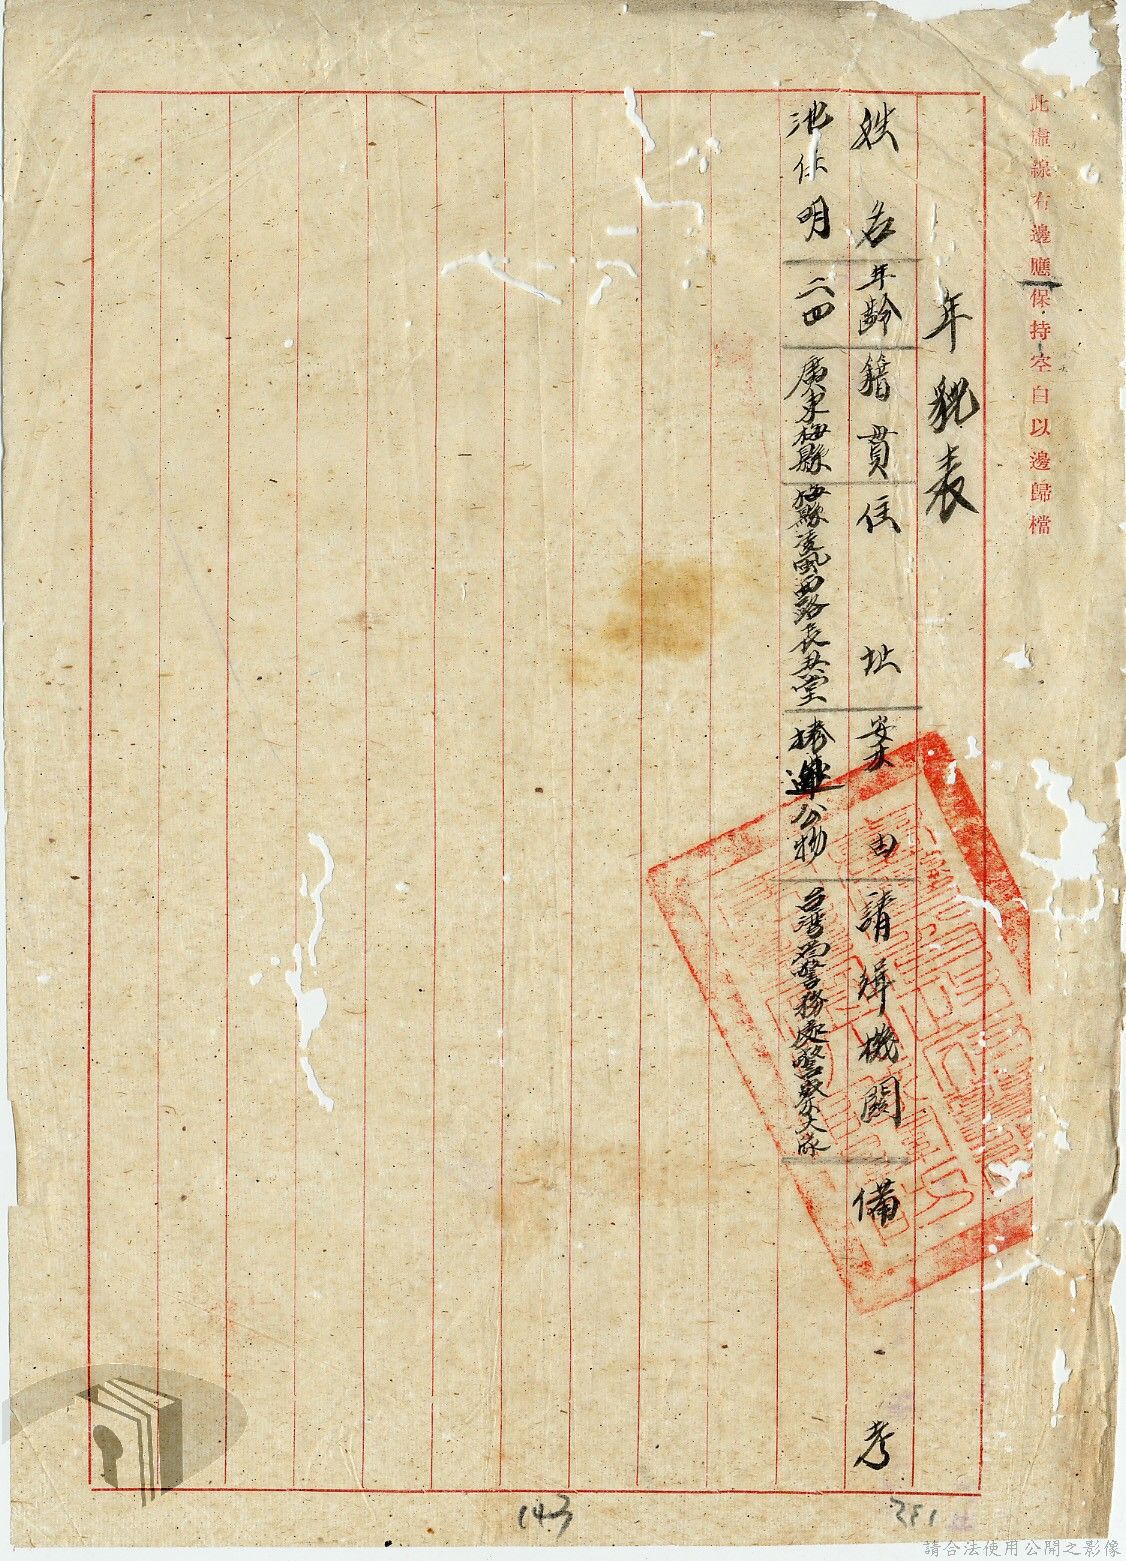 此虛線右邊應保持空白以邊歸檔
年貌表
姓名 年齡 籍貫 住址 案由 請緝機關 備考
池仕明 二四 廣東梅縣 梅縣凌風西路長興堂 捲逃公物 台灣省警務處警察大隊
143
251
請合法使用公開之影像